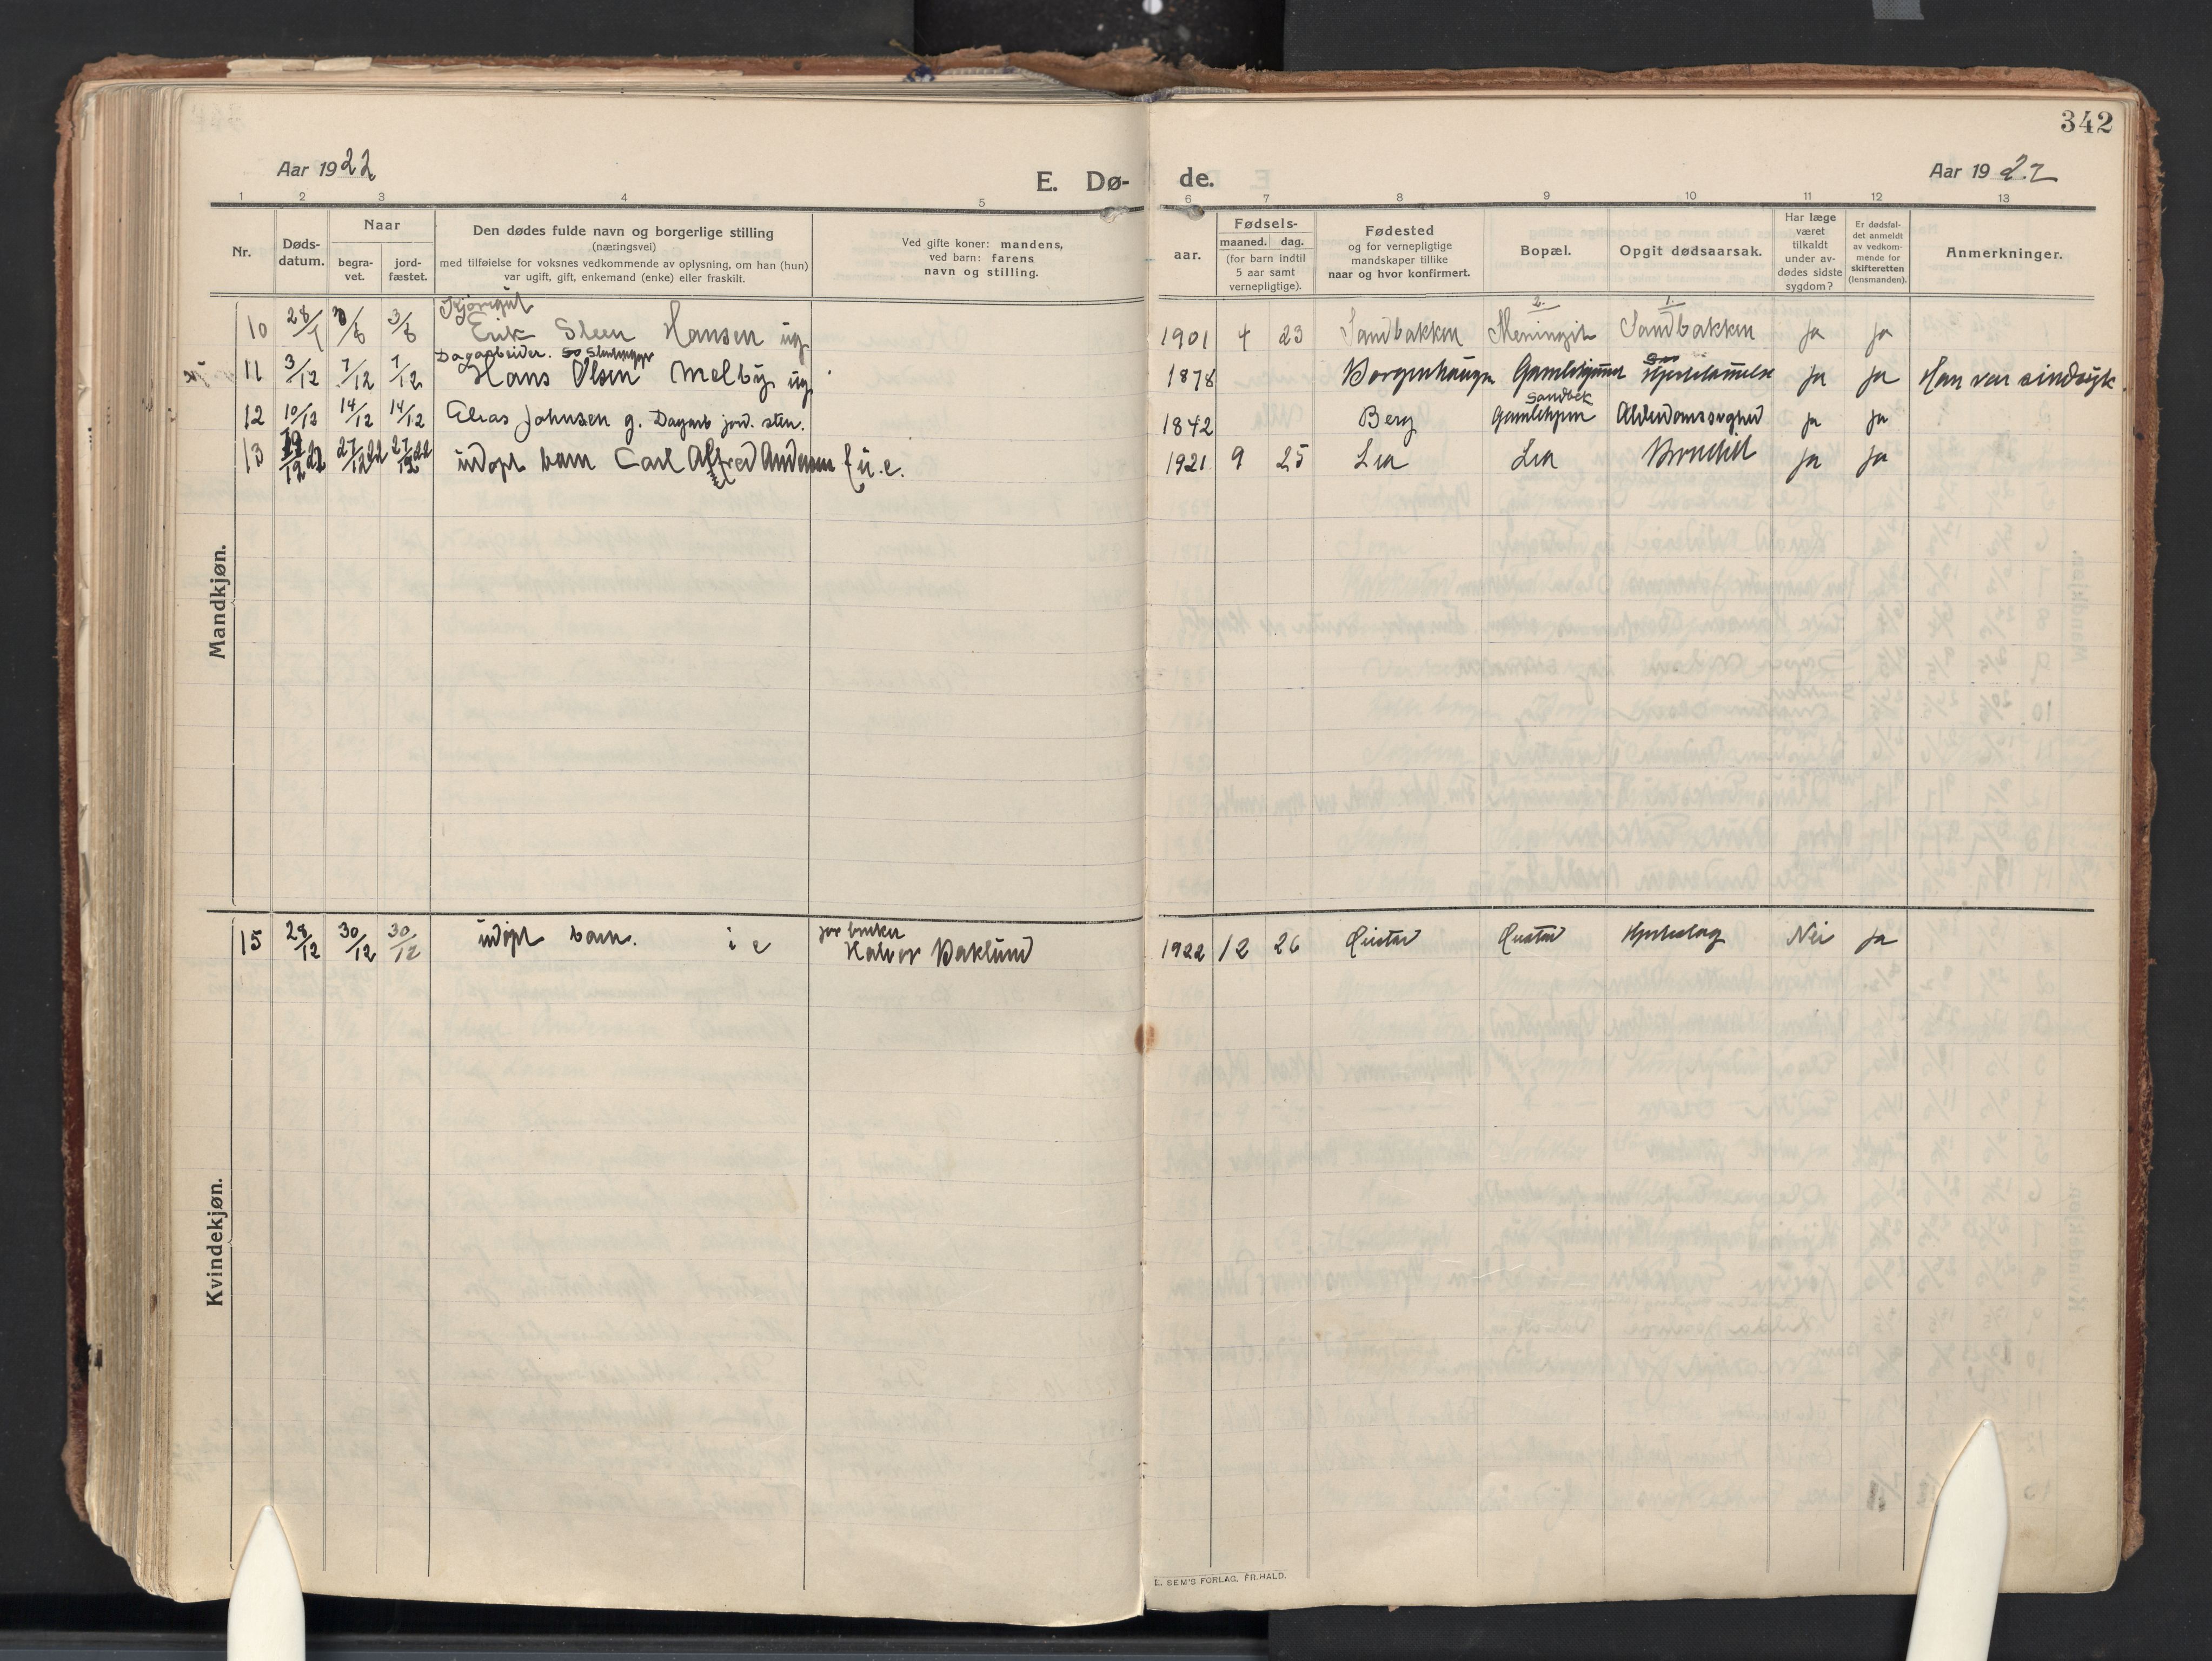 342
Aar 1922
E. Dø-
de.
Aar 1922
1 2 3 4 5 6 7 8 9 10 11 12 13
Nr.
Døds-
datum.
Naar
begra-
vet.
jord-
fæstet.
Den dødes fulde navn og borgerlige stilling
(næringsvei)
med tilføielse for voksnes vedkommende av oplysning, om han (hun)
var ugift, gift, enkemand (enke) eller fraskilt.
Ved gifte koner: mandens,
ved barn: farens
navn og stilling.
aar.
Fødsels-
maaned. dag.
(for barn indtil
5 aar samt
vernepligtige).
Fødested
og for vernepligtige
mandskaper tillike
naar og hvor konfirmert.
Bopæl.
Opgit dødsaarsak.
Har læge
været
tilkaldt
under av-
dødes sidste
sygdom?
Er dødsfal-
det anmeldt
av vedkom-
mende for
skifteretten
(lensmanden).
Anmerkninger.
Mandkjøn.
2. 1.
10 28/7 3/8 3/8 Erik Steen Hansen ug 1901 4 23 Sandbakken Meningit Sandbakken ja ja
Dagarbeider.
11 3/12 7/12 7/12 Hans Olsen Melby ug. 1878 Borgenhaugen Hjertelammelse ja ja Han var sindsyk.
Sandbek
12 10/12 14/12 14/12 Elias Johnsen g. Dagarb jord. sten. 1842 Berg Gamlehjem Alderdomssvaghed ja ja
13 27/12 22 27/12 22 udøpt barn Carl Alfred Andersen f u.e. 1921 9 25 Lia Lia ja ja
Kvindekjøn.
jorbruker
15 28/12 30/12 30/12 udøpt barn. i e Halvor Baklund 1922 12 26 Hjerteslag Nei ja
E. SEM'S FORLAG, FR.HALD.